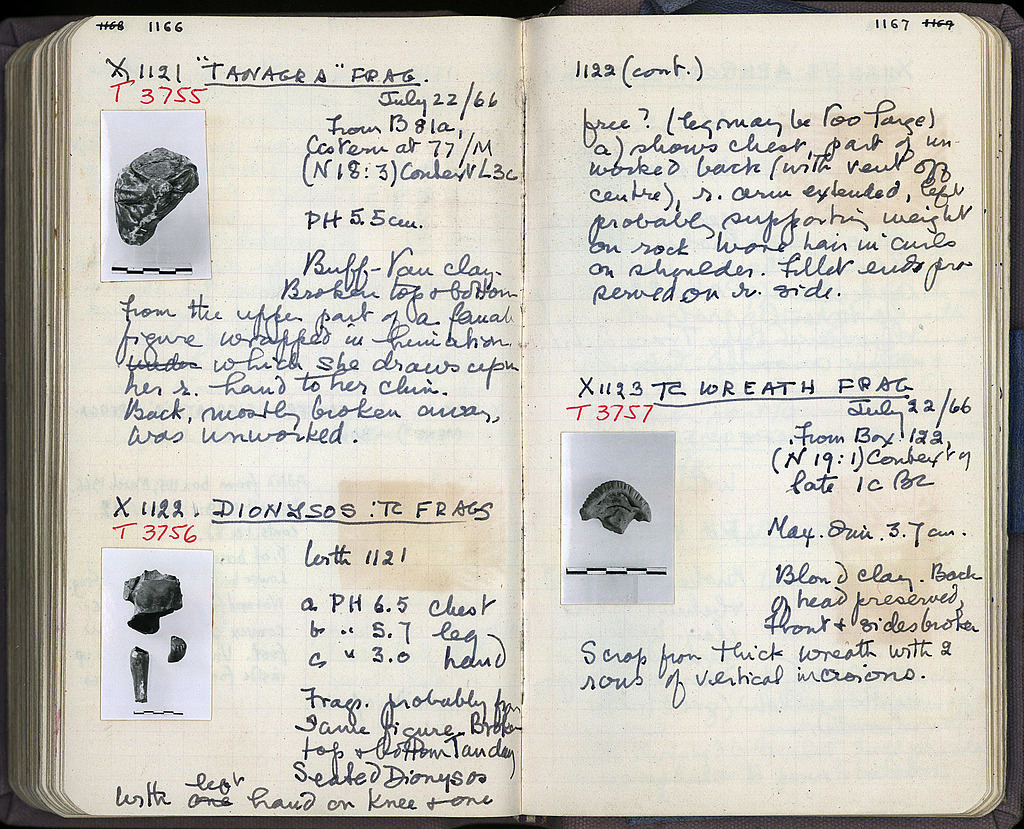 1168 1166
X 1121 "TANAGRA" FRAG.
T 3755
July 22/66
From B 81a,
Cistern at 77/M
(N 18:3) Context L3c
PH 5.5 cm.
Buff-Tan clay.
Broken top & bottom
From the upper part of a female
figure wrapped in himation
under which she draws up
her r. hand to her chin.
Back, mostly broken away,
was unworked.
X 1122 DIONYSOS : TC FRAGS
T 3756
With 1121
a PH 6.5 chest
b " 5.7 leg
c " 3.0 hand
Frags. probably from
same figure. Broken
top & bottom Tan clay
Seated Dionysos
with one left hand on knee & one
1167 1169
1122 (cont.)
free? (leg may be too large)
a) shows chest, part of un-
worked back (with vent off
centre), r. arm extended, left
probably supporting weight
on rock. Wore hair in curls
on shoulder. Fillet ends pre
served on r. side.
X1123 TC WREATH FRAG
T 3757
July 22/66
From Box 122,
(N 19:1) Context of
late 1c BC
Max. Dim. 3.7 cm.
Blond clay. Back
of head preserved,
front & sides broken
Scrap from thick wreath with 2
rows of vertical incisions.